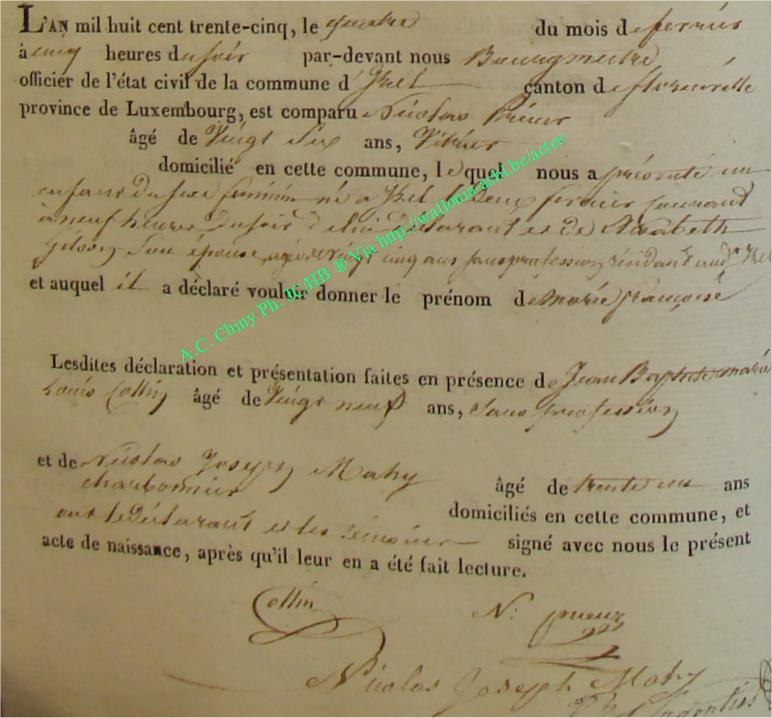 L'AN mil huit cent trente-cinq, le quatre du mois de fevrier
à cinq heures du soir par-devant nous Bourgmestre
officier de l'état civil de la commune d'Izel canton de florenville
province de Luxembourg, est comparu Nicolas Prieur
âgé de Vingt Six ans,
domicilié en cette commune, le quel nous a présenté un
enfant du sexe feminin né a Izel le deux fevrier courant
a neuf heures du soir de lui déclarant et de Elisabeth
Gilson Son épouse, agée de vingt cinq ans sans profession, résidant audt Izel
et auquel il a déclaré vouloir donner le prénom de marie françoise
Lesdites déclaration et présentation faites en présence de Jean Baptiste marie
Louis Collin âgé de Vingt neuf ans, Sans profession
et de Nicolas Joseph Mahy âgé de trente un ans
charbonnier domiciliés en cette commune, et
ont le Déclarant et les témoins signé avec nous le présent
acte de naissance, après qu'il leur en a été fait lecture.
Collin N: prieur
Nicolas Joseph Mahy
A.C. Chiny Ph. JC/HB ® Via http://wallonia.asbl.be/actes